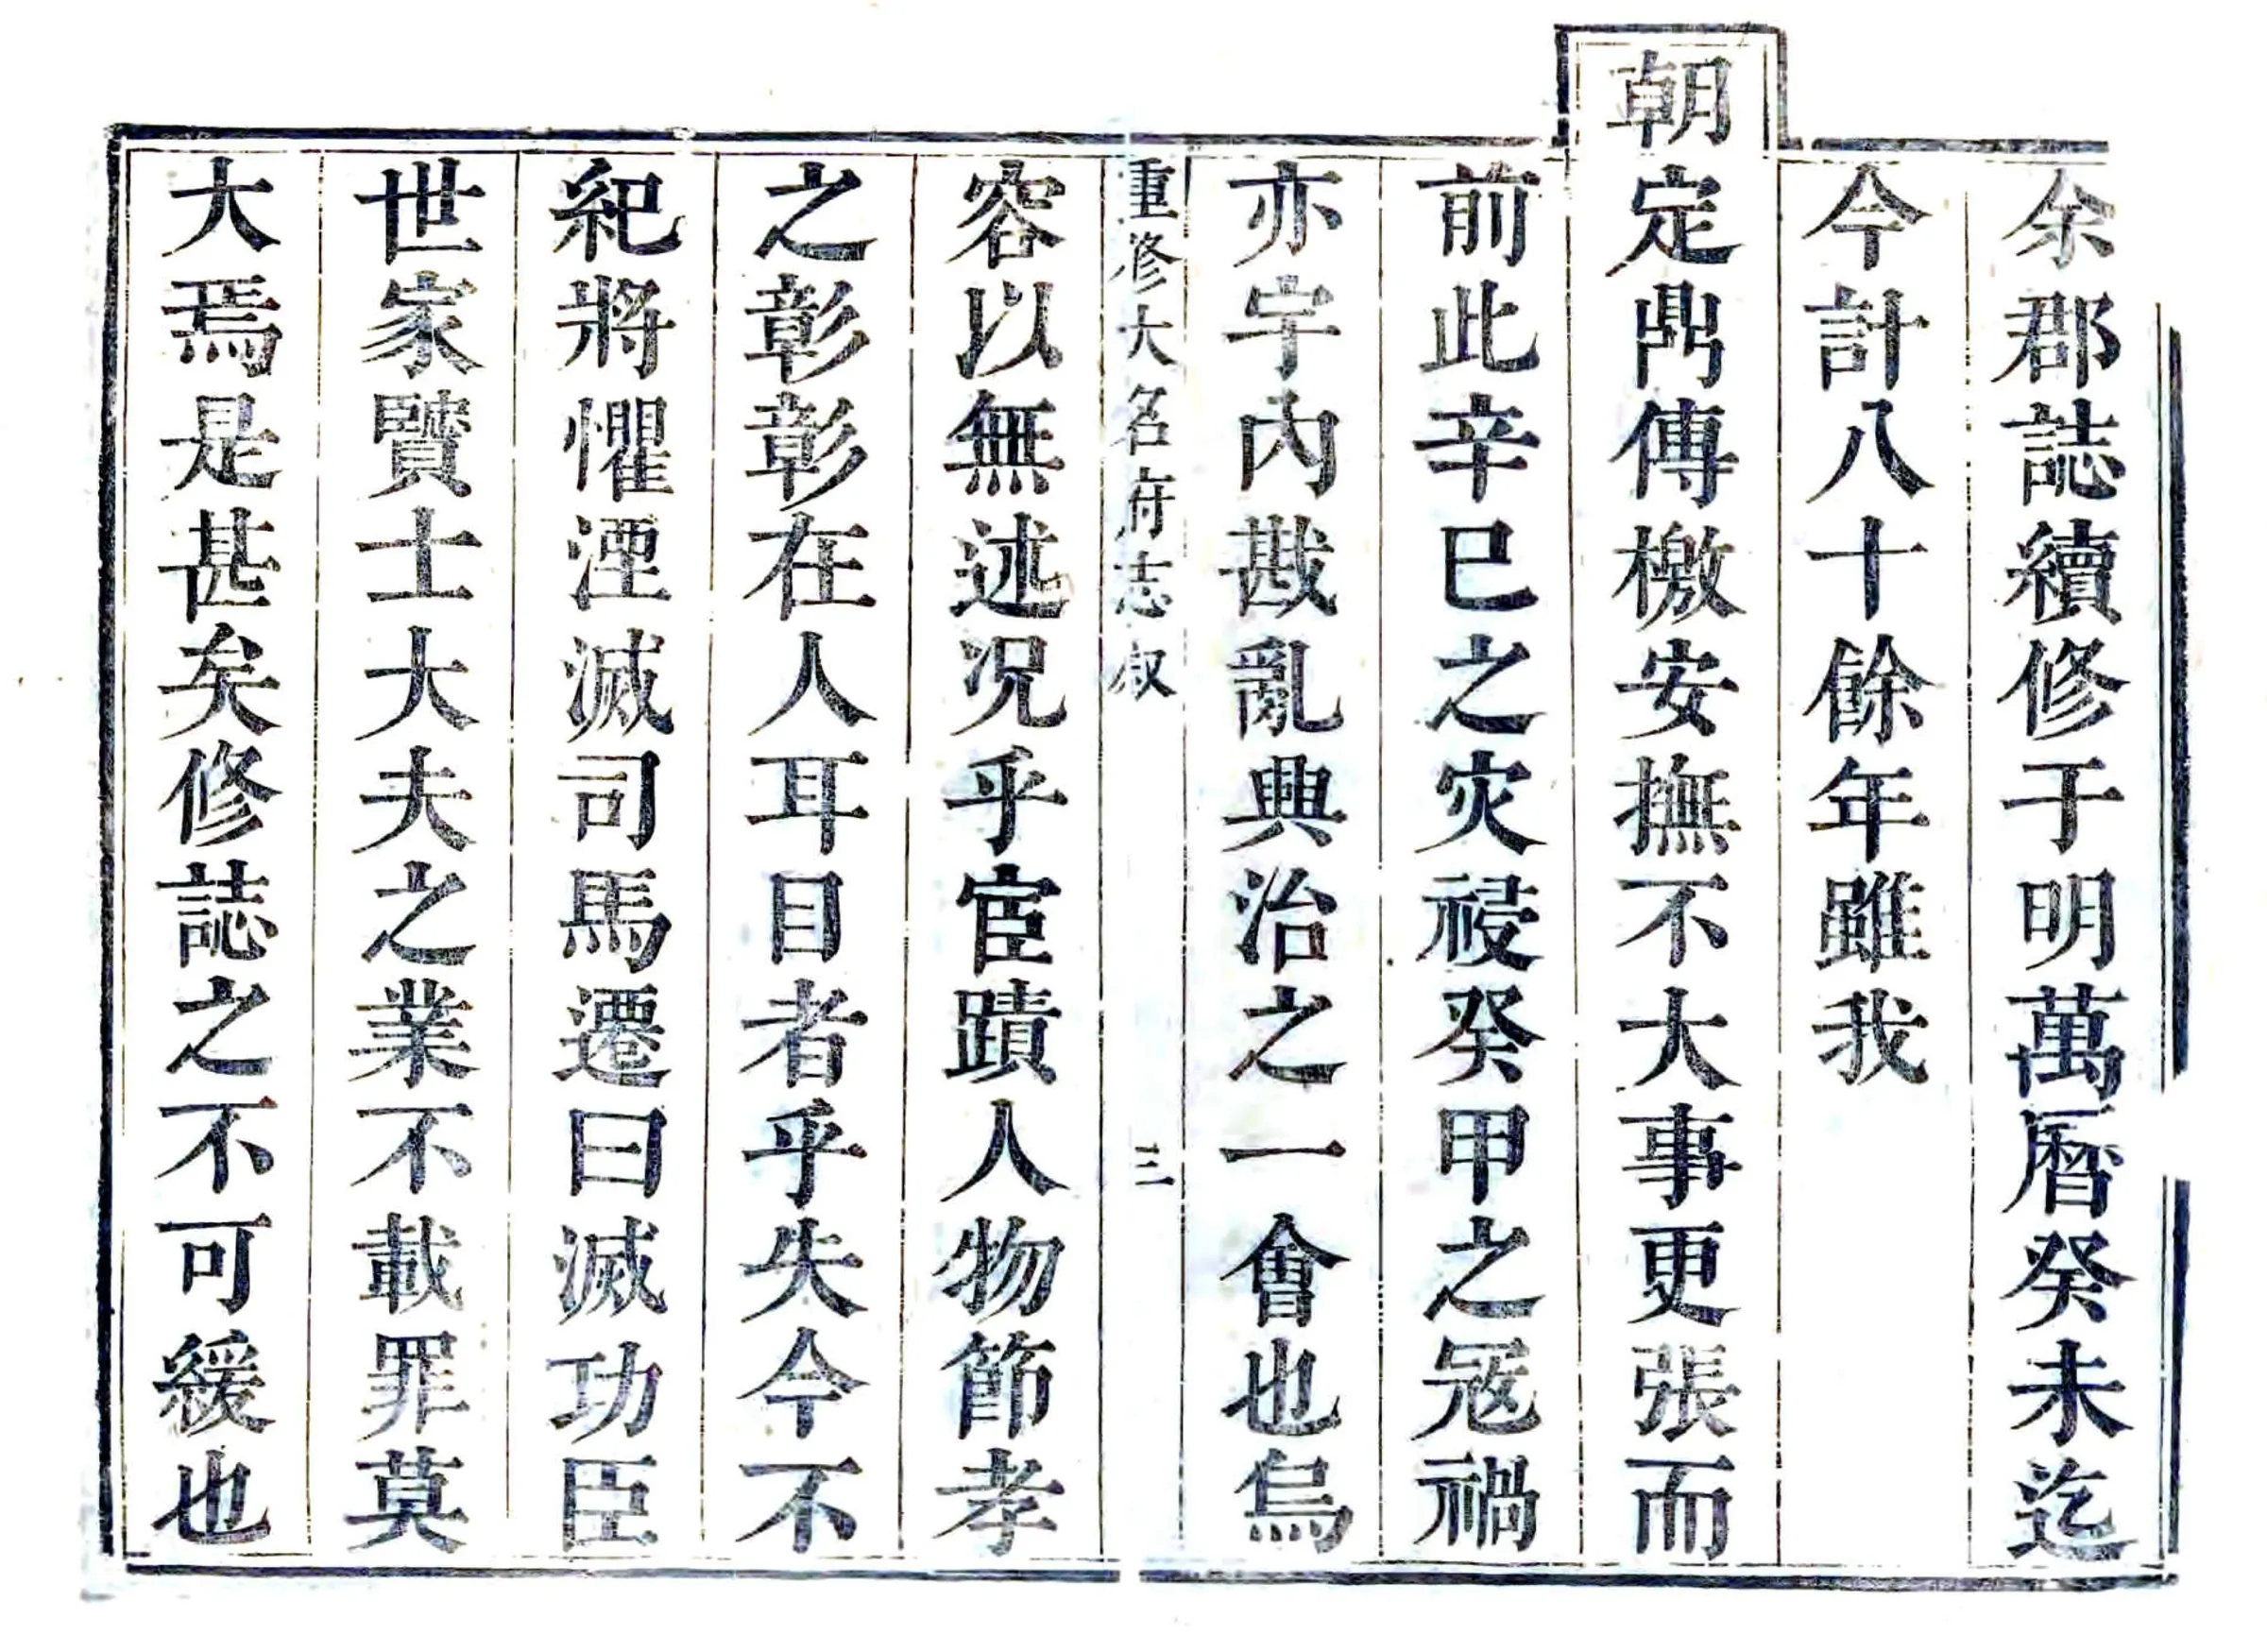 余郡誌續修于明萬曆癸未迄
今計八十餘年雖我
朝定鼎傳檄安撫不大事更張而
前此辛巳之灾祲癸甲之冦禍
亦宇內戡亂興治之一會也烏
重修大名府志叙
三
容以無述况乎宦蹟人物節孝
之彰彰在人耳目者乎失今不
紀將懼湮滅司馬遷曰滅功臣
世家賢士大夫之業不載罪莫
大焉是甚矣修誌之不可緩也